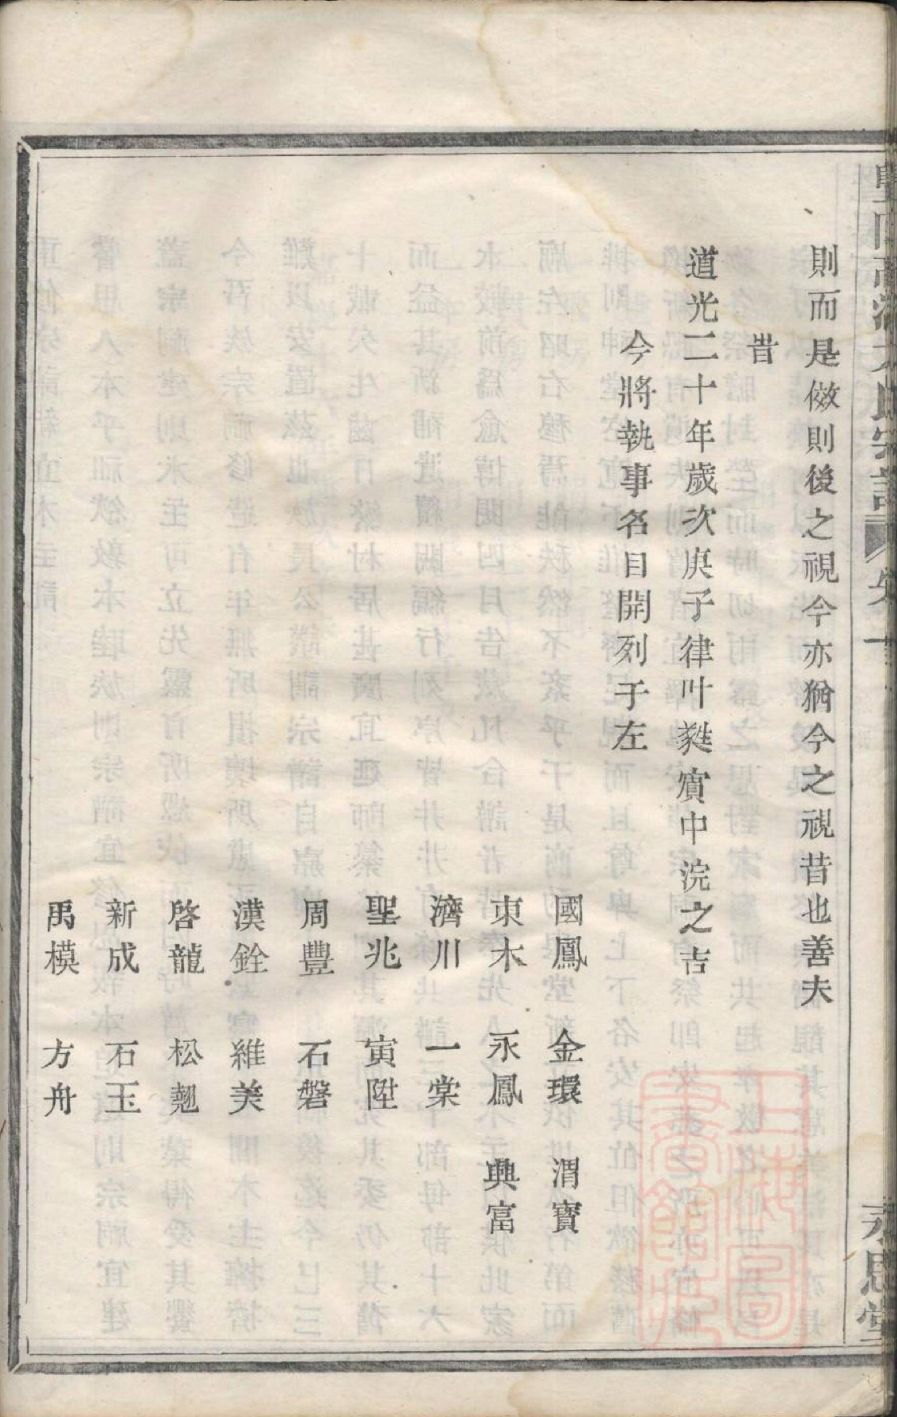 則而是傚則後之視今亦猶今之視昔也善夫
昔
道光二十年歲次庚子律叶蕤賓中浣之吉
今將執事名目開列于左
國鳳 金環 渭寶
東木 永鳳 興富
濟川 一棠
聖兆 寅陞
周豐 石磐
漢銓 維美
啓龍 松翹
新成 石玉
禹模 方舟
氏宗譜 卷一 永思堂